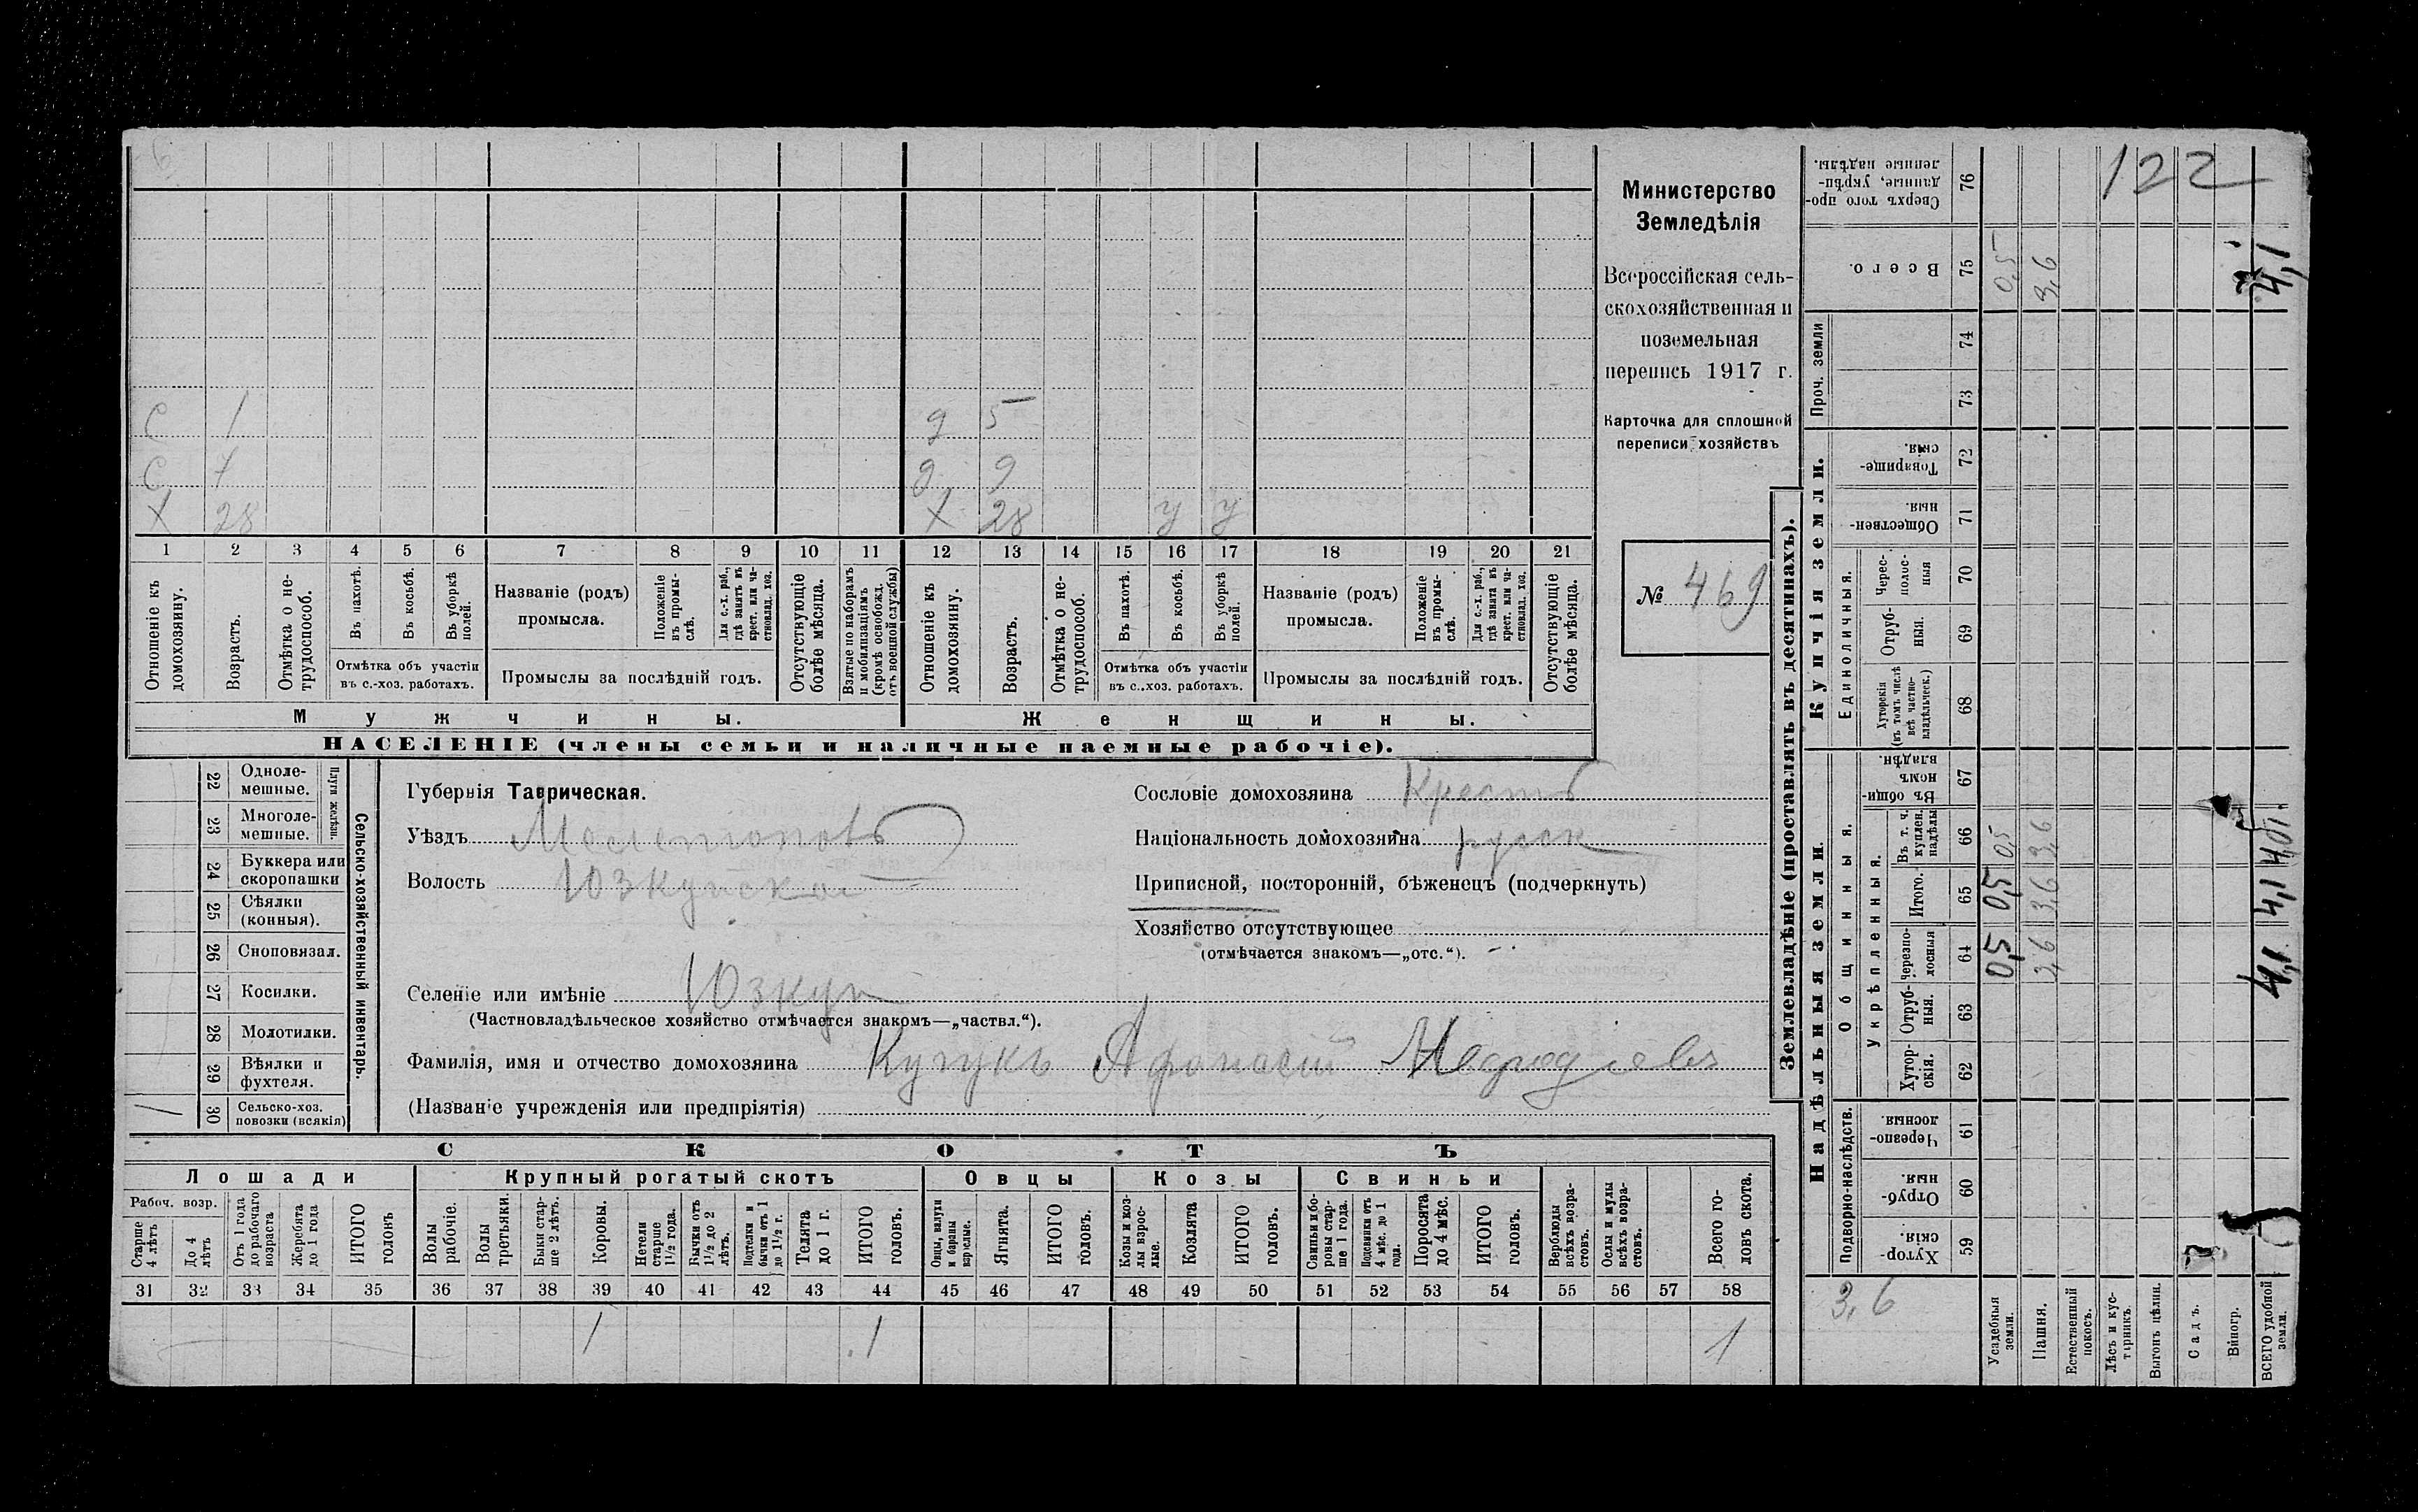 6
С 1 д 5
С 7 д 9
Х 28 Х 28 У У
1 2 3 4 5 6 7 8 9 10 11 12 13 14 15 16 17 18 19 20 21
Отношеніе къ домохозяину.
Возрастъ.
Отмѣтка о не-
трудоспособ.
Въ пахотѣ.
Въ косьбѣ.
Въ уборкѣ
полей.
Отмѣтка объ участіи
въ с.-хоз. работахъ.
Названіе (родъ)
промысла.
Положеніе
въ промы-
слѣ.
Для с.-х. раб.,
гдѣ занятъ въ
крест. или ча-
стновлад. хоз.
Промыслы за послѣдній годъ.
Отсутствующіе
болѣе мѣсяца.
Взятые по наборамъ
и мобилизаціямъ
(кромѣ освобожд.
отъ военной службы)
Отношеніе къ
домохозяину.
Возрастъ.
Отмѣтка о не-
трудоспособ.
Въ пахотѣ.
Въ косьбѣ.
Въ уборкѣ
полей.
Отмѣтка объ участіи
въ с..хоз. работахъ.
Названіе (родъ)
промысла.
Положеніе
въ промы-
слѣ.
Для с.-х. раб.,
гдѣ занята въ
крест. или ча-
стновлад. хоз.
Промыслы за послѣдній годъ.
Отсутствующіе
болѣе мѣсяца.
Мужчины.
Женщины.
НАСЕЛЕНІЕ (члены семьи и наличные наемные рабочіе).
Министерство
Земледѣлія
Всероссійская сель-
скохозяйственная и
поземельная
перепись 1917 г.
Карточка для сплошной
переписи хозяйствъ
№ 469
22 Одноле-
мешные.
23 Многоле-
мешные.
Плуги желѣзн.
24 Буккера или
скоропашки
25 Сѣялки
(конныя).
26 Сноповязал.
27 Косилки.
28 Молотилки.
29 Вѣялки и
фухтеля.
1 30 Сельско-хоз.
повозки (всякія)
Сельско-хозяйственный инвентарь.
Губернія Таврическая.
Уѣздъ Мелитопов
Волость Юзкуйска
Селеніе или имѣніе Юзкуи
(Частновладѣльческое хозяйство отмѣчается знакомъ—„частвл.“).
Фамилія, имя и отчество домохозяина Кучукъ Афонасій
(Названіе учрежденія или предпріятія)
Сословіе домохозяина Крестъ
Національность домохозяина руск
Приписной, посторонній, бѣженецъ (подчеркнуть)
Хозяйство отсутствующее
(отмѣчается знакомъ—„отс.“).
СКОТЪ
Лошади
Рабоч. возр.
Старше
4 лѣтъ
До 4
лѣтъ
Отъ 1 года
до рабочаго
возраста
Жеребята
до 1 года
ИТОГО
головъ
Крупный рогатый скотъ
Волы
рабочіе.
Волы
третьяки.
Быки стар-
ше 2 лѣтъ.
Коровы.
Нетели
старше
1½ года.
Бычки отъ
1½ до 2
лѣтъ.
Подтелки и
бычки отъ 1
до 1½ г.
Телята
до 1 г.
ИТОГО
головъ.
Овцы
Овцы, валухи
и бараны
взрослые.
Ягнята.
ИТОГО
головъ.
Козы
Козы и коз-
лы взрос-
лые.
Козлята
ИТОГО
головъ.
Свиньи
Свиньи и бо-
ровы стар-
ше 1 года.
Подсвинки отъ
4 мѣс. до 1
года.
Поросята
до 4 мѣс.
ИТОГО
головъ.
Верблюды
всѣхъ возра-
стовъ.
Ослы и мулы
всѣхъ возра-
стовъ.
Всего го-
ловъ скота.
31 32 33 34 35 36 37 38 39 40 41 42 43 44 45 46 47 48 49 50 51 52 53 54 55 56 57 58
1 1 1
Землевладѣніе (проставлять въ десятинахъ).
Купчія земли.
Надѣльныя земли.
122
Сверхъ того про-
данные, укрѣп-
ленные надѣлы. 76
Всего. 75 0,5 3,6 4,1
Проч. земли 74
73
Товарище-
скія. 72
Обществен-
ныя. 71
Единоличныя.
Черес-
полос-
ныя 70
Отруб-
ныя. 69
Хуторскія
(въ томъ числѣ
всѣ частно-
владѣльческ.) 68
Общинныя.
Въ общи-
номъ
владѣн. 67
Укрѣпленныя.
Въ т. ч.
куплен.
надѣлы 66 0,5 3,6
Итого. 65 0,5 3,6 4,1
Черезпо-
лосныя 64 0,5 3,6 4,1
Отруб-
ныя. 63
Хутор-
скія. 62
Подворно-наслѣдств.
Черезпо-
лосныя. 61
Отруб-
ныя. 60
Хутор-
скія. 59
3,6
Усадебныя
земли.
Пашня.
Естественный
покосъ.
Лѣсъ и кус-
тарникъ.
Выгонъ цѣлин.
Садъ.
Виногр.
ВСЕГО удобной
земли.